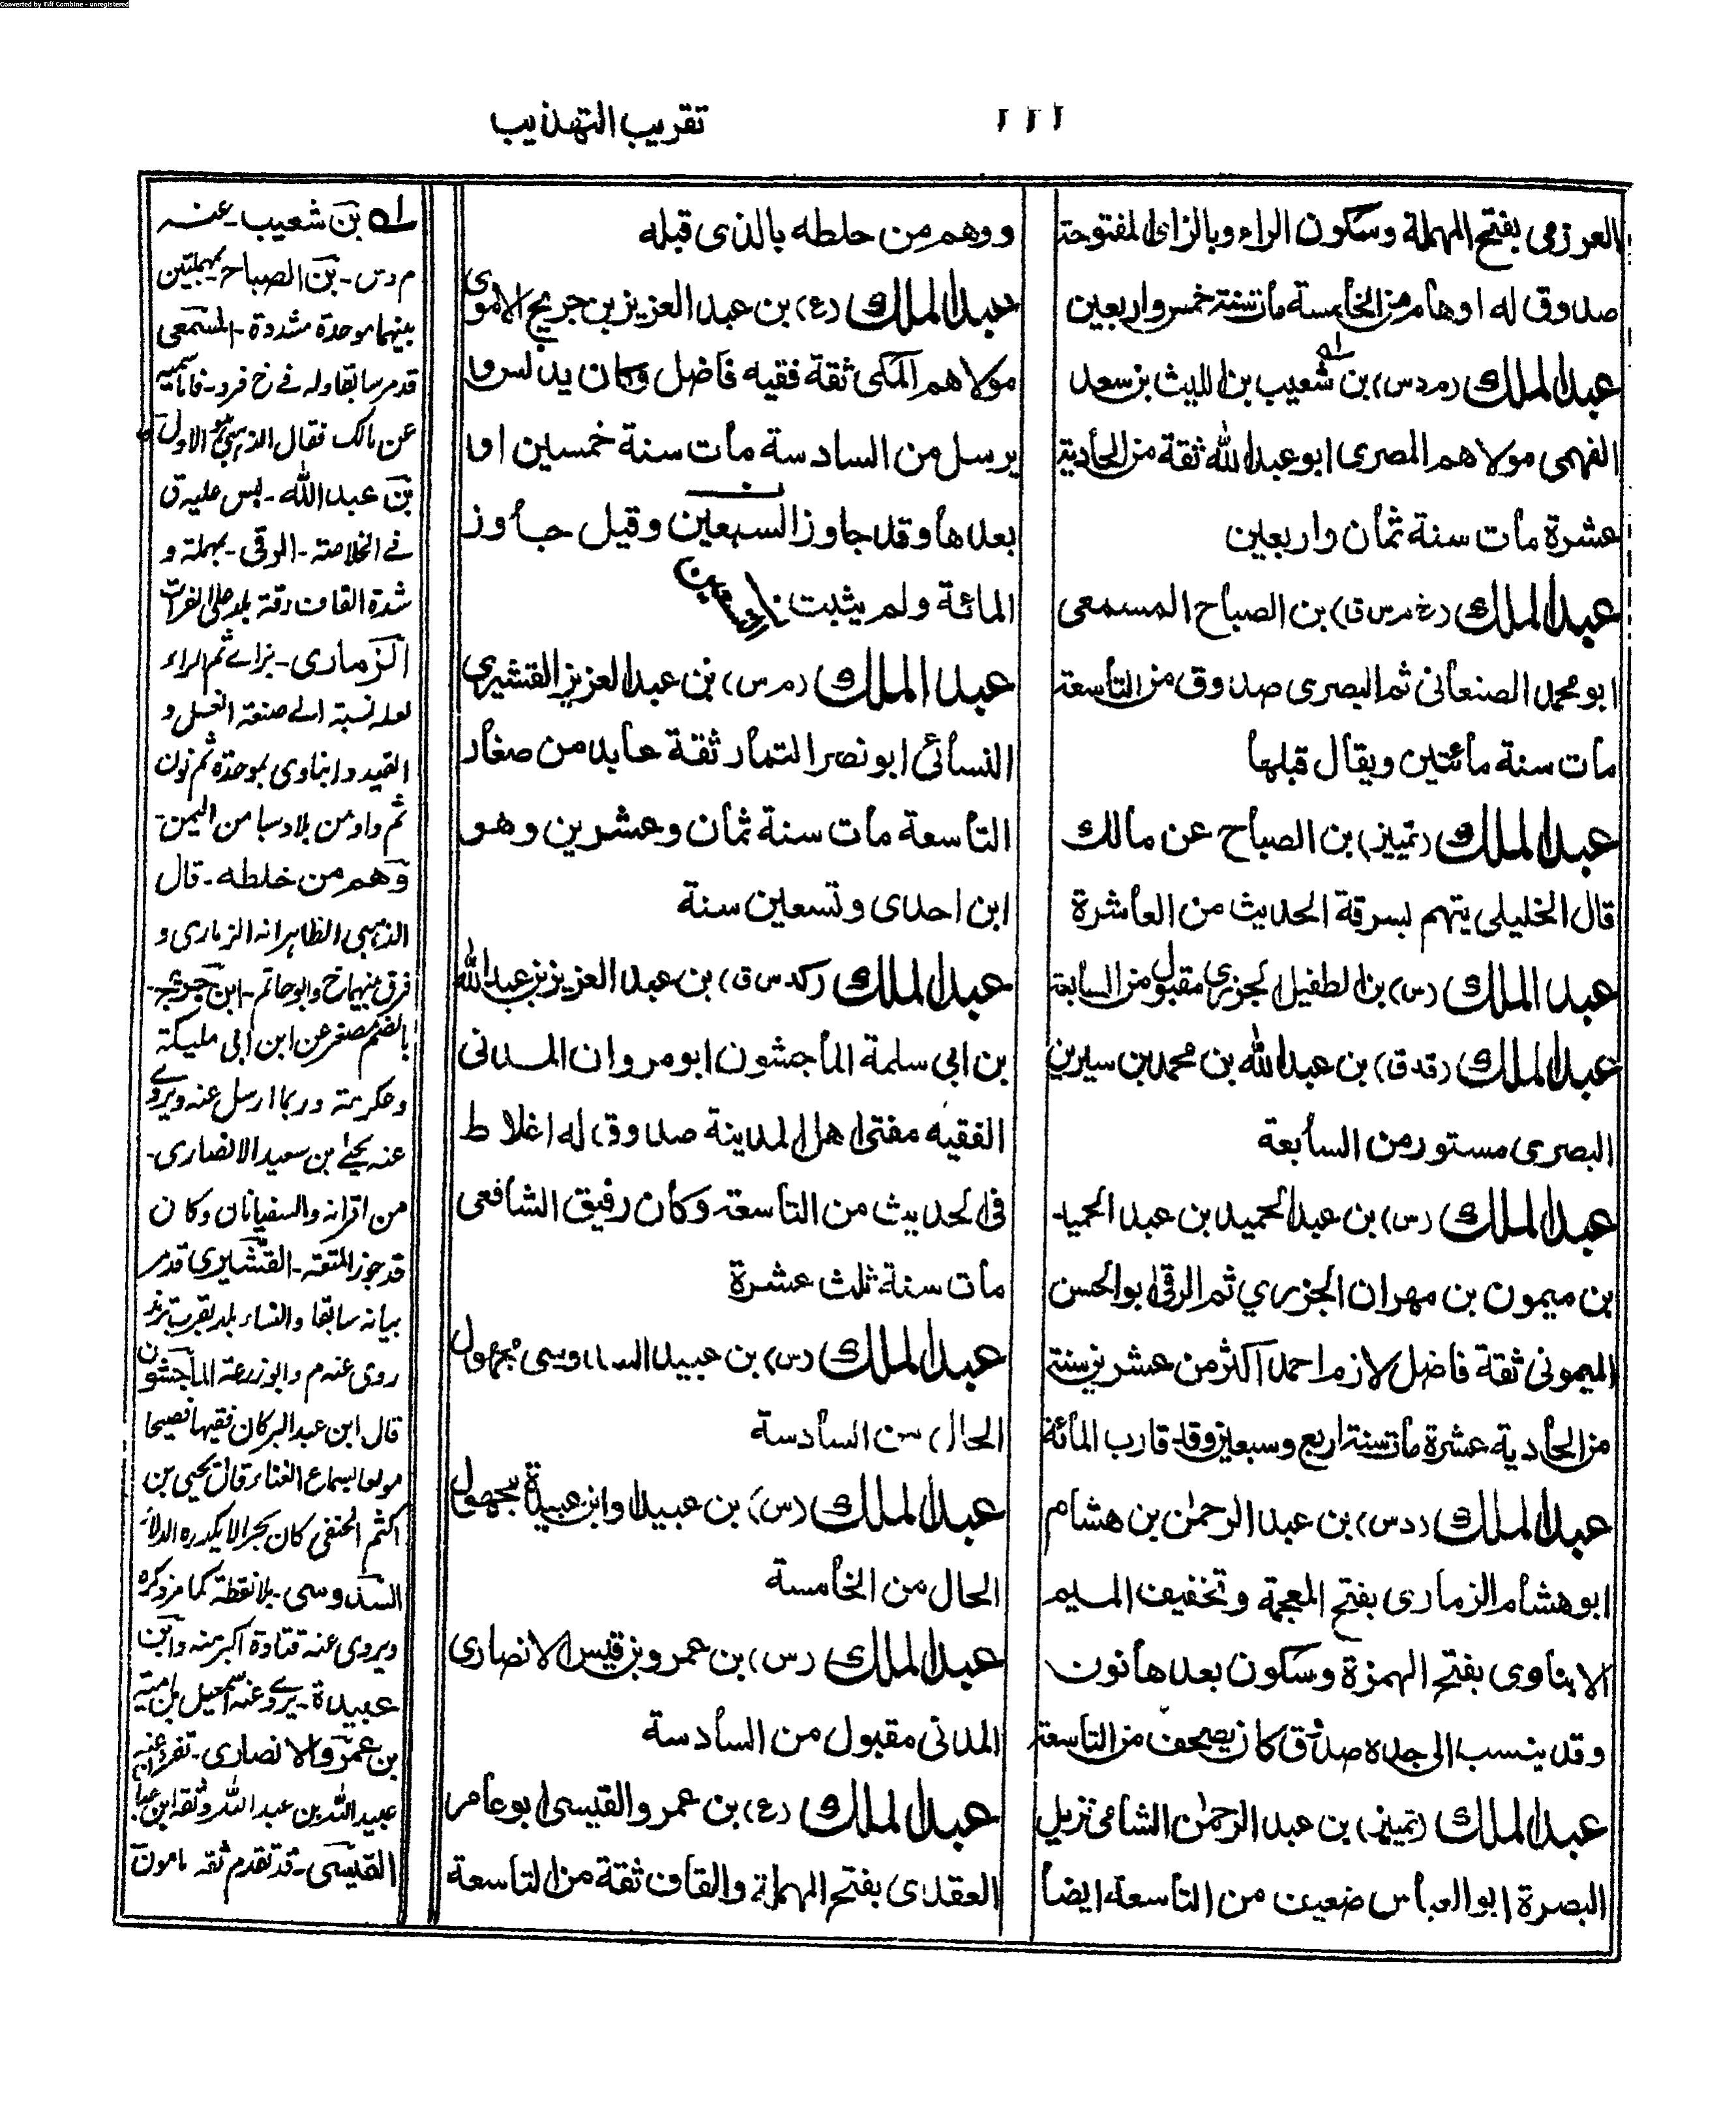 Converted by Tiff Combine - unregistered
تقريب التهذيب
العرزمى بفتح المهملة وسكون الراء وبالزاى المفتوحة
صدوق له اوهام من الخامسة مات سنة خمس واربعين
عبد الملك (م د س) بن شعيب بن الليث بن سعد
الفهمى مولاهم المصرى ابو عبد الله ثقة من الحادية
عشرة مات سنة ثمان واربعين
عبد الملك (خ م س ق) بن الصباح المسمعى
ابو محمد الصنعانى ثم البصرى صدوق من التاسعة
مات سنة مائتين ويقال قبلها
عبد الملك (تمييز) بن الصباح عن مالك
قال الخليلى يتهم بسرقة الحديث من العاشرة
عبد الملك (س) بن الطفيل الجزرى مقبول من السابعة
عبد الملك (قد ق) بن عبد الله بن محمد بن سيرين
البصرى مستور من السابعة
عبد الملك (س) بن عبد الحميد بن عبد الحميد
بن ميمون بن مهران الجزرى ثم الرقى ابو الحسن
الميمونى ثقة فاضل لازم احمد اكثر من عشرين سنة
من الحادية عشرة مات سنة اربع وسبعين وقد قارب المائة
عبد الملك (د س) بن عبد الرحمٰن بن هشام
ابو هشام الزمارى بفتح المعجمة وتخفيف الميم
الابناوى بفتح الهمزة وسكون بعدها نون
وقد ينسب الى جده صدوق كان يصحف من التاسعة
عبد الملك (تمييز) بن عبد الرحمٰن الشامى نزيل
البصرة ابو العباس ضعيف من التاسعة ايضا
ووهم من خلطه بالذى قبله
عبد الملك (ع) بن عبد العزيز بن جريج الاموى
مولاهم المكى ثقة فقيه فاضل وكان يدلس و
يرسل من السادسة مات سنة خمسين او
بعدها وقد جاوز السبعين وقيل جاوز
المائة ولم يثبت
عبد الملك (م س) بن عبد العزيز القشيرى
النسائى ابو نصر التمار ثقة عابد من صغار
التاسعة مات سنة ثمان وعشرين وهو
ابن احدى وتسعين سنة
عبد الملك (كد س ق) بن عبد العزيز بن عبد الله
بن ابى سلمة الماجشون ابو مروان المدنى
الفقيه مفتى اهل المدينة صدوق له اغلاط
فى الحديث من التاسعة وكان رفيق الشافعى
مات سنة ثلث عشرة
عبد الملك (س) بن عبيد السدوسى مجهول
الحال من السادسة
عبد الملك (س) بن عبيد او ابن عبيدة مجهول
الحال من الخامسة
عبد الملك (س) بن عمرو بن قيس الانصارى
المدنى مقبول من السادسة
عبد الملك (ع) بن عمرو القيسى ابو عامر
العقدى بفتح المهملة والقاف ثقة من التاسعة
بن شعيب - عنه
م د س - بن الصباح بمهملتين
بينهما موحدة مشددة - المسمعى
قدم سابقا وله فى خ فرد -
عن مالك فقال الذهبى هو الاول
بن عبد الله - ليس عليه ق
فى الخلاصة - الرقى - بمهملة و
شدة القاف رقة بلد على الفرات
الزمارى - بزاى ثم الراء
لعله نسبة الى صنعة الغسل و
القيد وابناوى بموحدة ثم نون
ثم واو من بلاد سبا من اليمن
وهم من خلطه - قال
الذهبى الظاهر انه الزمارى و
فرق بينهما خ وابو حاتم - ابن جريج -
بالضم مصغر عن ابن ابى مليكة
وعكرمة وربما ارسل عنه ويروى
عنه يحيى بن سعيد الانصارى -
من اقرانه والسفيانان وكان
قد جوز المتعة - القشيرى قدم
بيانه سابقا والنساء بلد بقرب
روى عنه م وابو زرعة الماجشون
قال ابن عبد البر كان فقيها فصيحا
مولعا بسماع الغناء وقال يحيى بن
اكثم الحنفى كان بحرا لا يكدره الدلاء
السدوسى - بلا نقطة كما مر ذكره
ويروى عنه قتادة اكبر منه وابن
عبيدة - يروى عنه اسمعيل بن امية
بن عمرو الانصارى - تفرد عنه
عبيد الله بن عبد الله وثقه ابن
القيسى - قد تقدم ثقه مامون